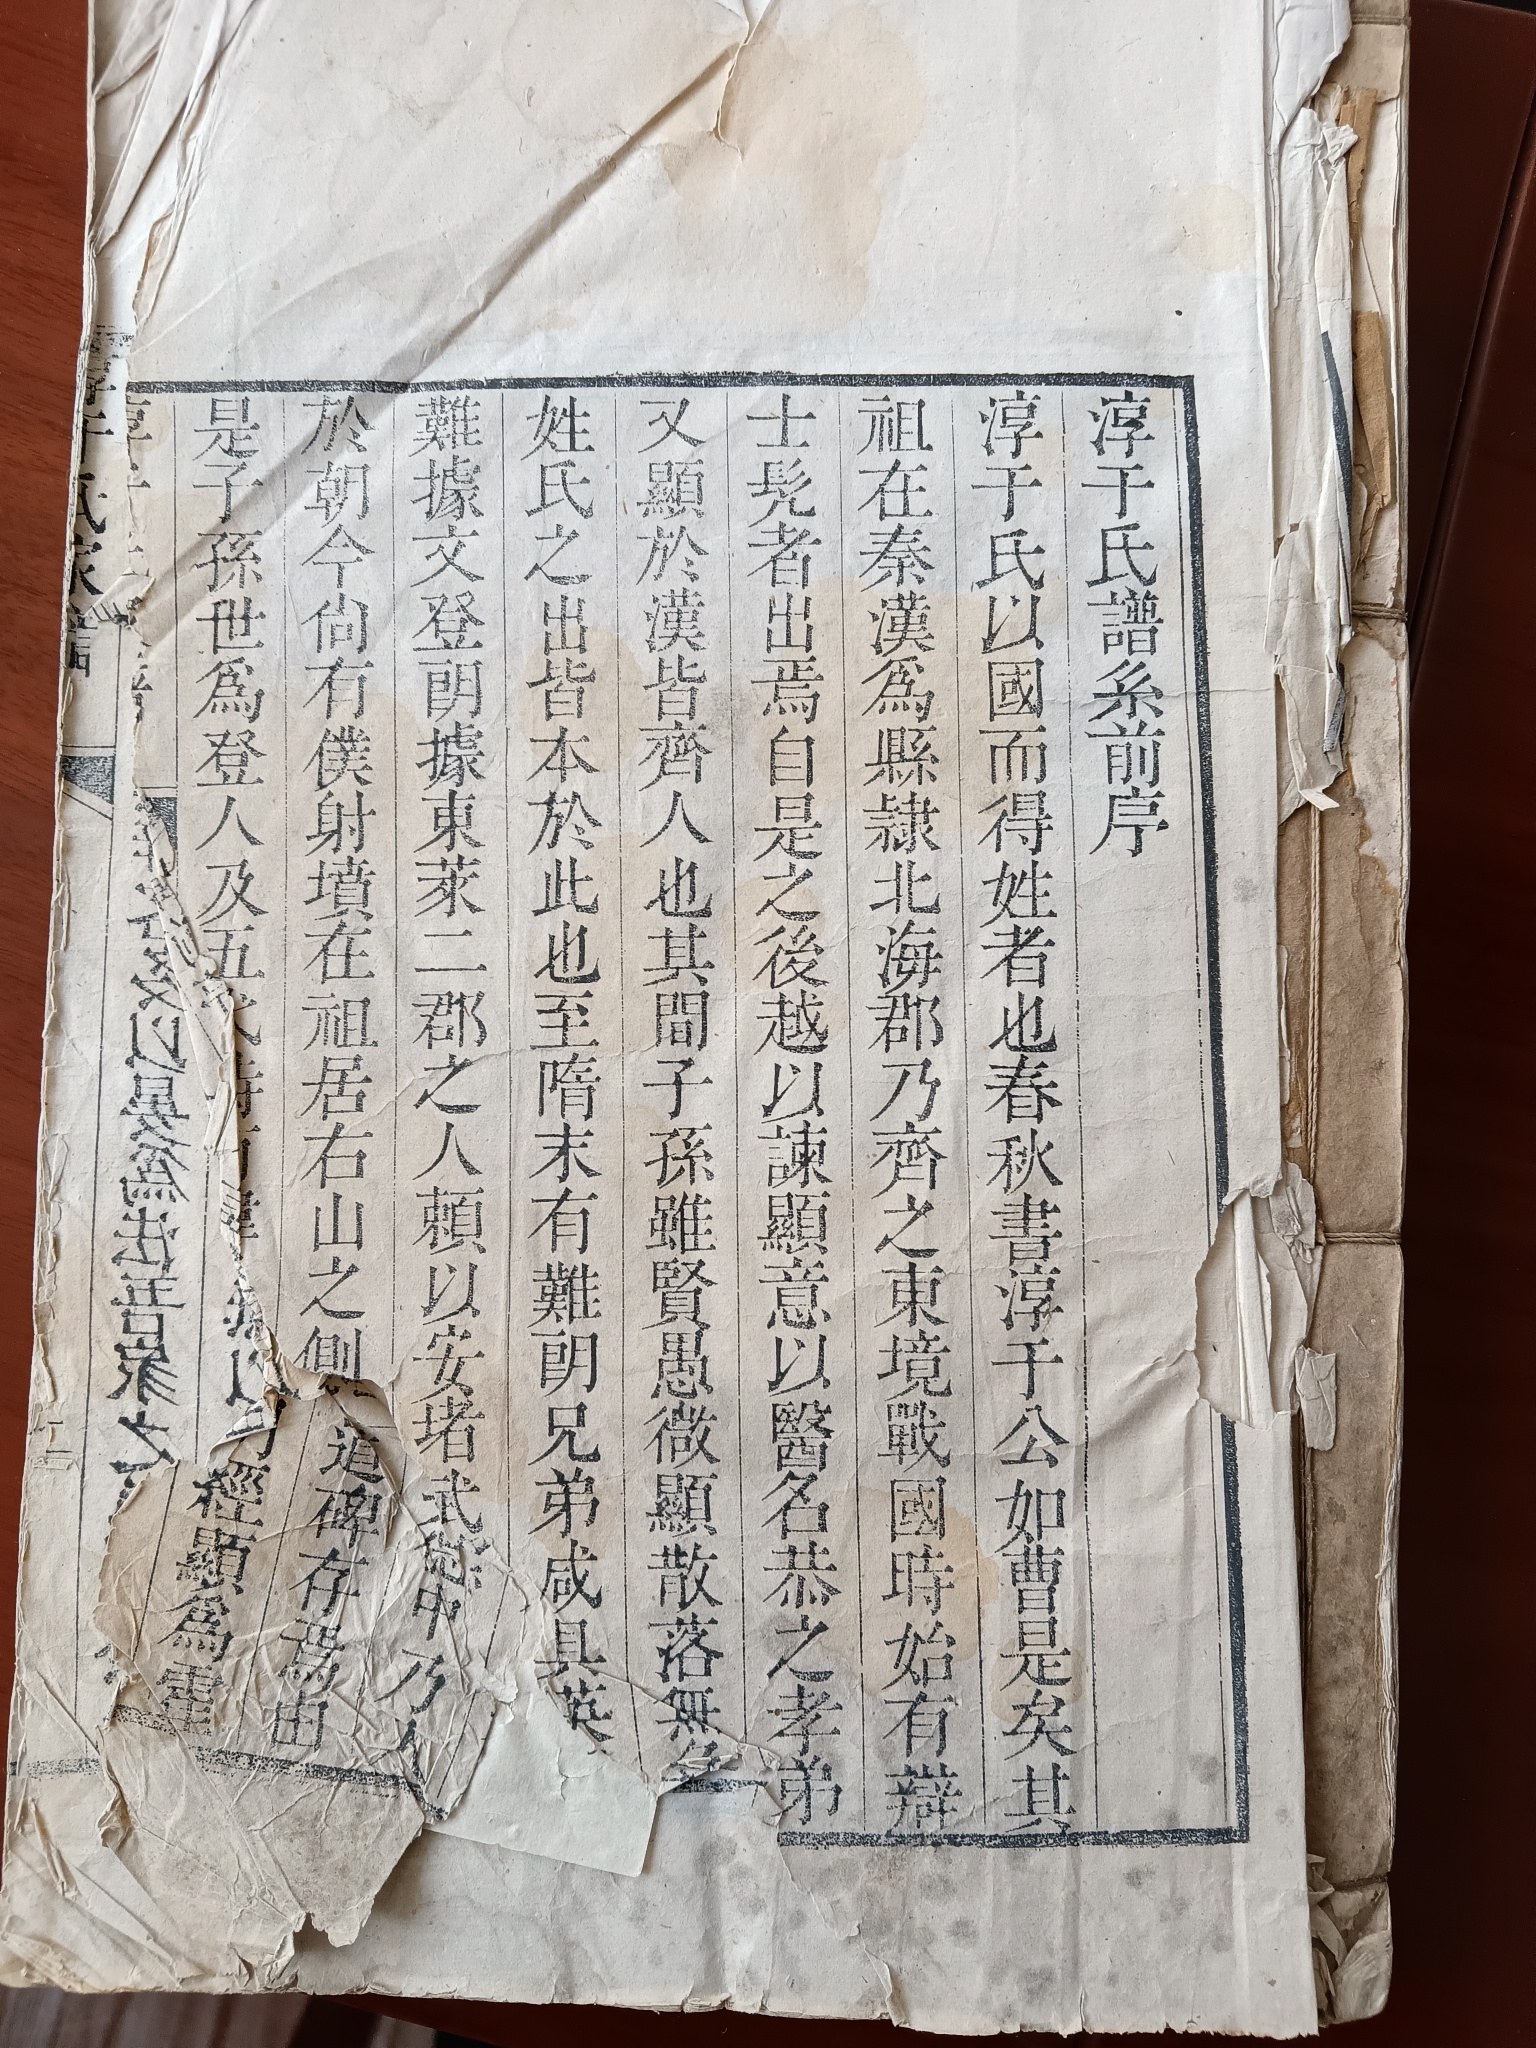 淳于氏譜系前序
淳于氏以國而得姓者也春秋書淳于公如曹是矣其
祖在秦漢爲縣隷北海郡乃齊之東境戰國時始有辯
士髠者出焉自是之後越以諫顯意以醫名恭之孝弟
又顯於漢皆齊人也其間子孫雖賢愚微顯散落無名
姓氏之出皆本於此也至隋末有難朗兄弟咸具英
難據文登朗據東萊二郡之人頼以安堵武德中乃人
於朝今尙有僕射墳在祖居右山之側道碑存焉由
是子孫世爲登人及五代時經顯爲軍
淳于氏家譜
二